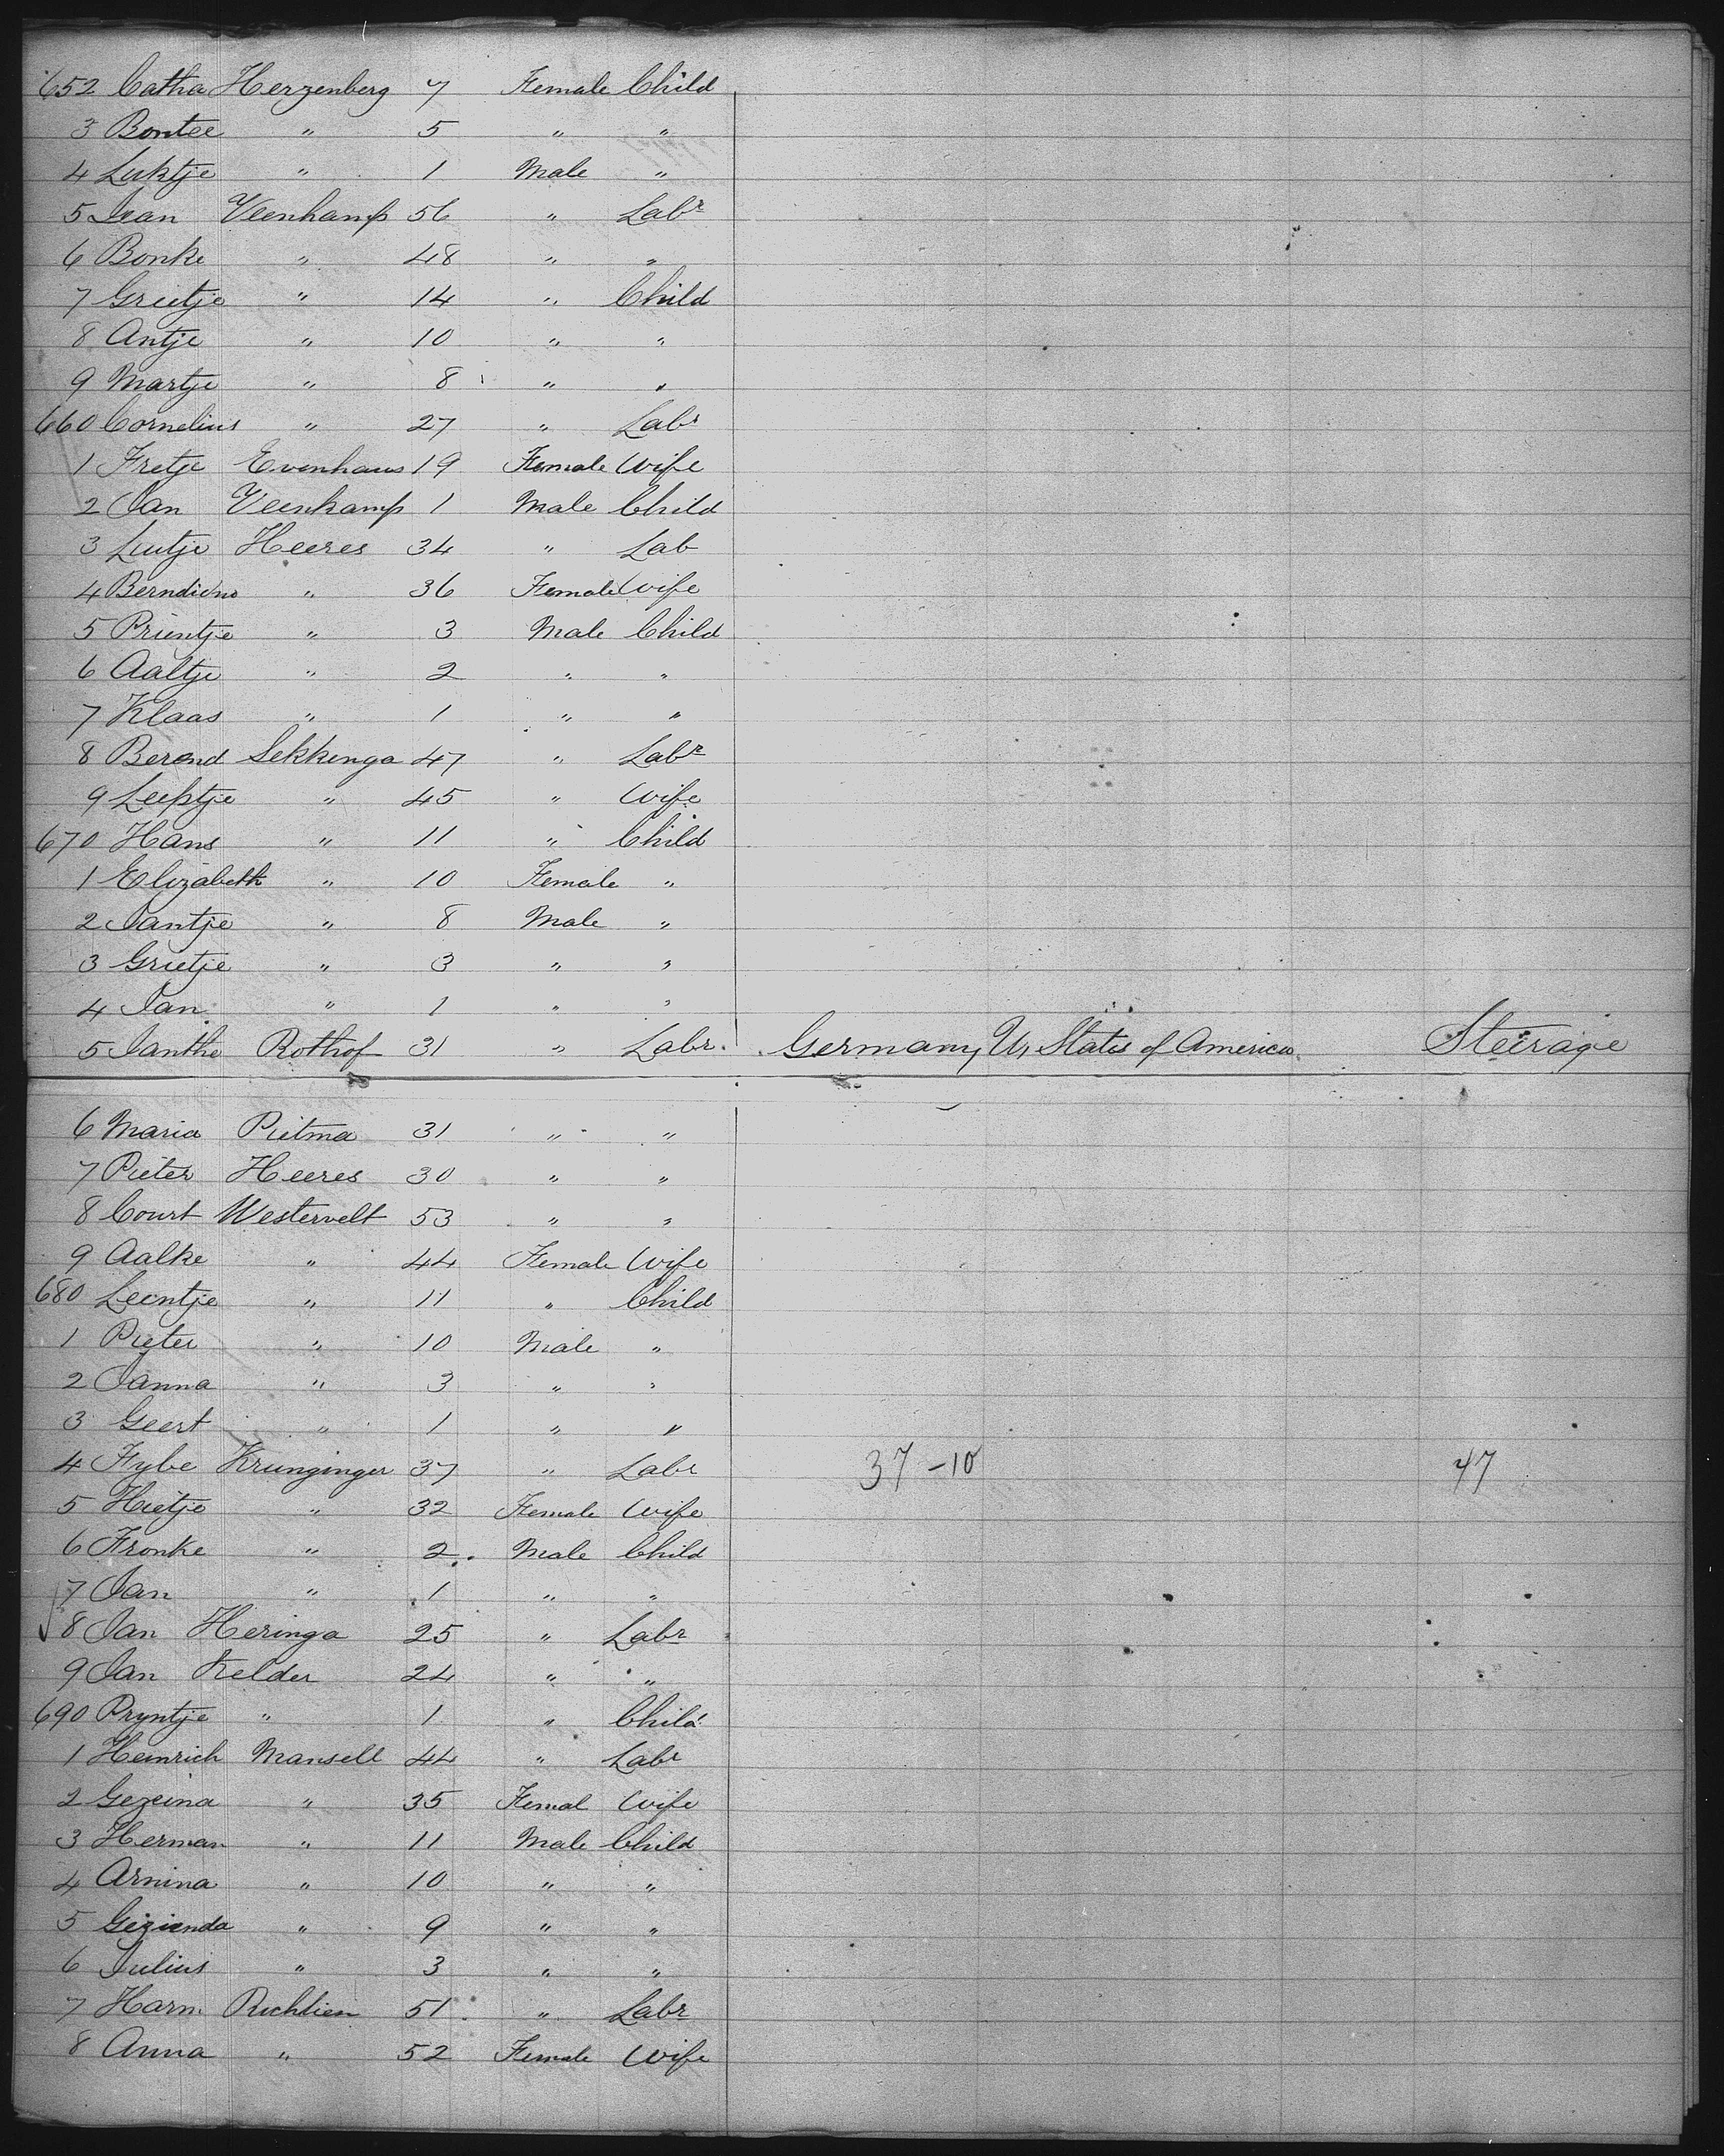 652 Catha Herzenberg 7 Female Child
3 Bontee " 5 " "
4 Luktje " 1 Male "
5 Jean Veenhamp 56 " Labr
6 Bonke " 48 " "
7 Grietje " 14 " Child
8 Antje " 10 " "
9 Martje " 8 " "
660 Cornelius " 27 " Labr
1 Fretje Evenhaus 19 Female Wife
2 Jan Veenkamp 1 Male Child
3 Luitje Heeres 34 " Lab
4 " 36 Female Wife
5 Prientje " 3 Male Child
6 Aaltje " 2 " "
7 Klaas " 1 " "
8 Berend Sekkenga 47 " Labr
9 " 45 " Wife
670 Hans " 11 " Child
1 Elizabeth " 10 Female "
2 Jantje " 8 Male "
3 Grietje " 3 " "
4 Jan " 1 " "
5 Janthe Rothof 31 " Labr. Germany U, States of America. Steerage
6 Maria Pietma 31 " "
7 Pieter Heeres 30 " "
8 Court Westervelt 53 " "
9 Aalke " 44 Female Wife
680 Leentje " 11 " Child
1 Pieter " 10 Male "
2 Janna " 3 " "
3 Geert " 1 " "
4 Fybe Krunginger 37 " Labr 37 - 10 47
5 Hietje " 32 Female Wife
6 Fronke " 2 Male Child
7 Jan " 1 " "
8 Jan Heringa 25 " Labr
9 Jan Kelder 24 " "
690 Pryntje " 1 " Child
1 Heinrich Mansell 44 " Labr
2 Gezeina " 35 Femal Wife
3 Herman " 11 Male Child
4 Arnina " 10 " "
5 Gezienda " 9 " "
6 Julius " 3 " "
7 Harm. Richlien 51 " Labr
8 Anna " 52 Female Wife